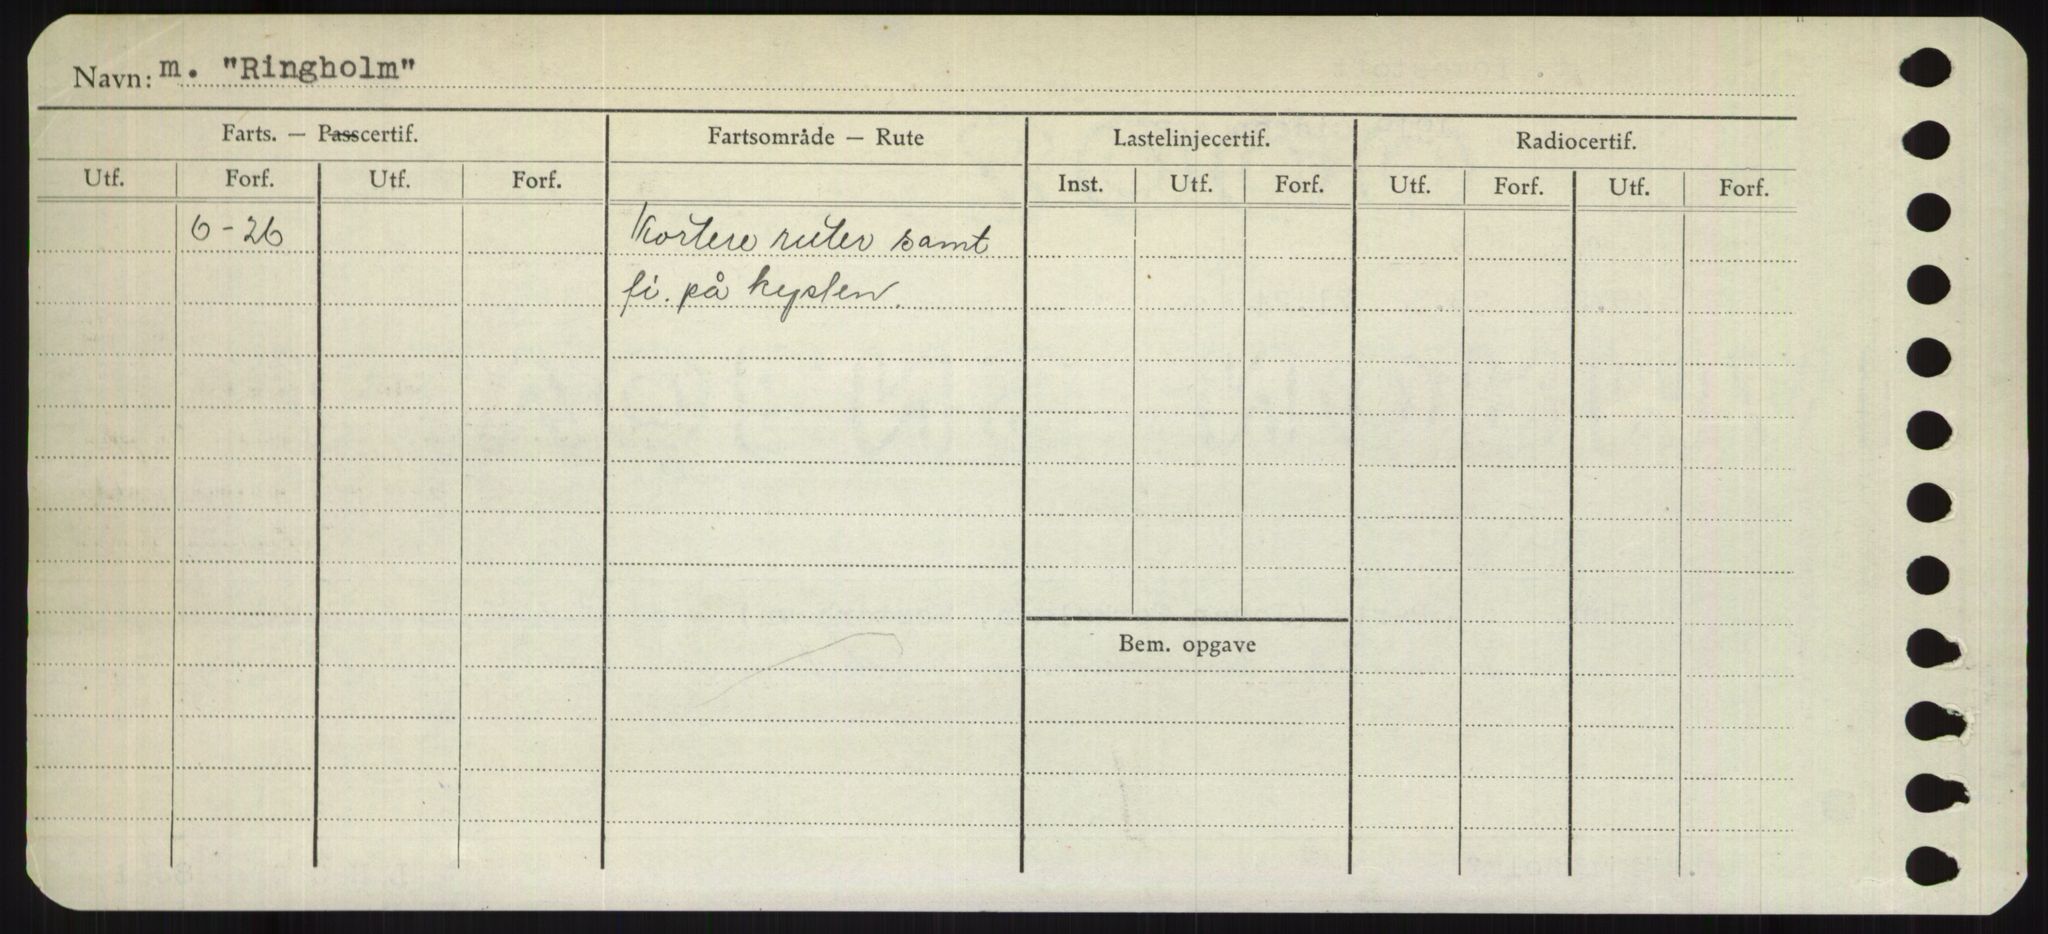 Navn: m. "Ringholm"
Farts. — Passcertif. Fartsområde — Rute Lastelinjecertif. Radiocertif.
Utf. Forf. Utf. Forf. Inst. Utf. Forf. Utf. Forf. Utf. Forf.
6-26 Kortere ruter samt
fi. på kysten.
Bem. opgave